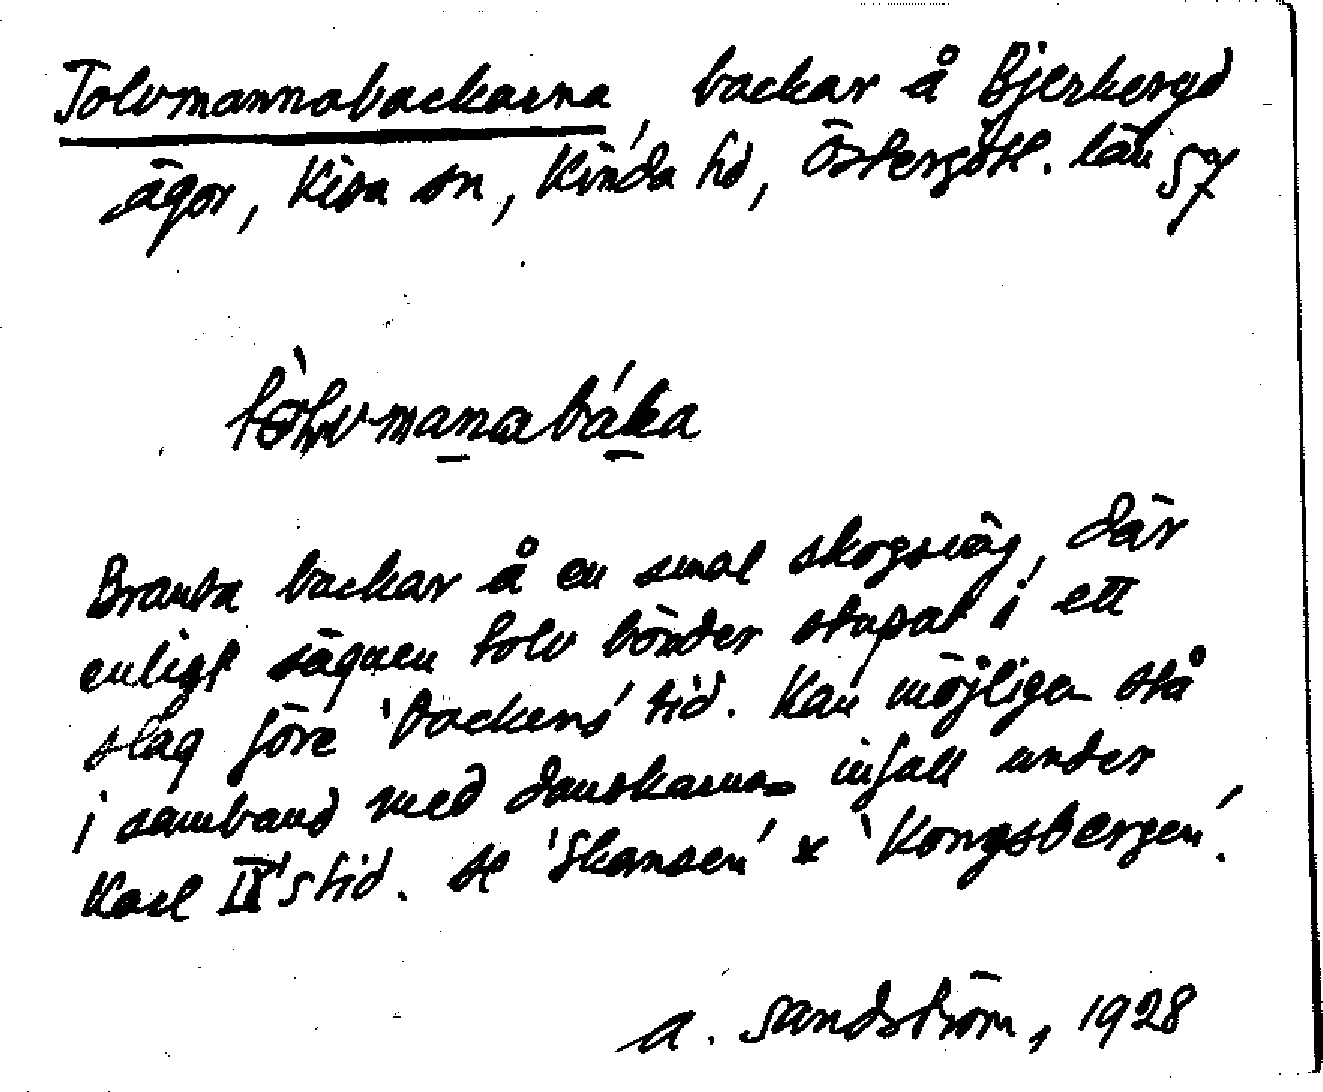 Tolvmannabackarna, backar å Bjerkeryd
ägor, Kisa sn, Kinda hd, Östergötl. län 57
tòlvmanabáka
Branta backar å en smal skogsväg, där
enligt sägnen tolv bönder stupat i ett
slag före 'backens' tid. Kan möjligen stå
i samband med danskarnas infall under
Karl IX's tid. Se 'Skansen' x 'Kongsbergen'.
A. Sandström, 1928